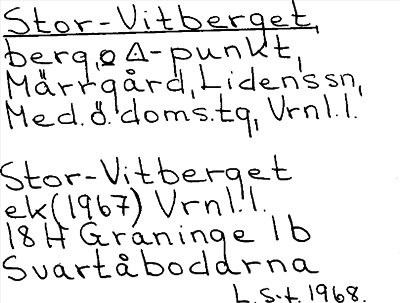 Stor-Vitberget,
berg, o Δ-punkt,
Märrgård, Lidenssn,
Med.ö.doms.tg, Vrnl.l.
Stor-Vitberget
ek(1967) Vrnl.l.
18H Graninge 1b
Svartåbodarna
L.S-t. 1968.